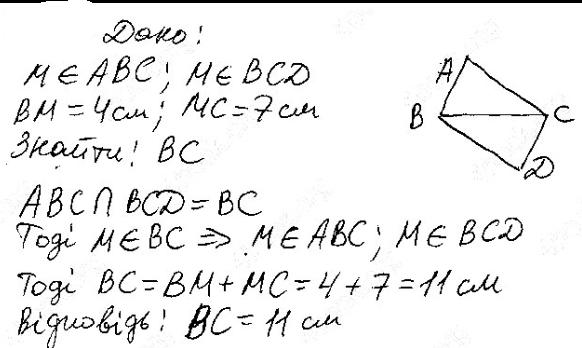 Дано:
M ∈ ABC; M ∈ BCD
BM = 4 см; MC = 7 см
Знайти: BC
A
B
C
D
ABC ∩ BCD = BC
Тоді M ∈ BC ⇒ M ∈ ABC; M ∈ BCD
Тоді BC = BM + MC = 4 + 7 = 11 см
Відповідь: BC = 11 см